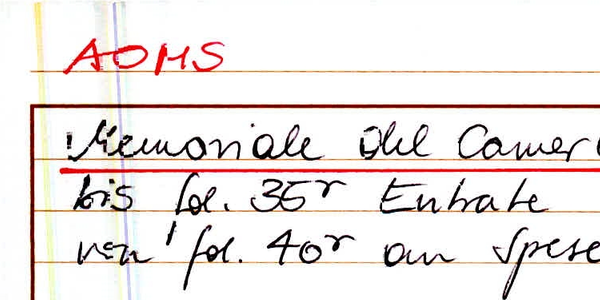 AOMS
Memoriale del Camer
bis fol. 35r Entrate
von fol. 40r an Spese